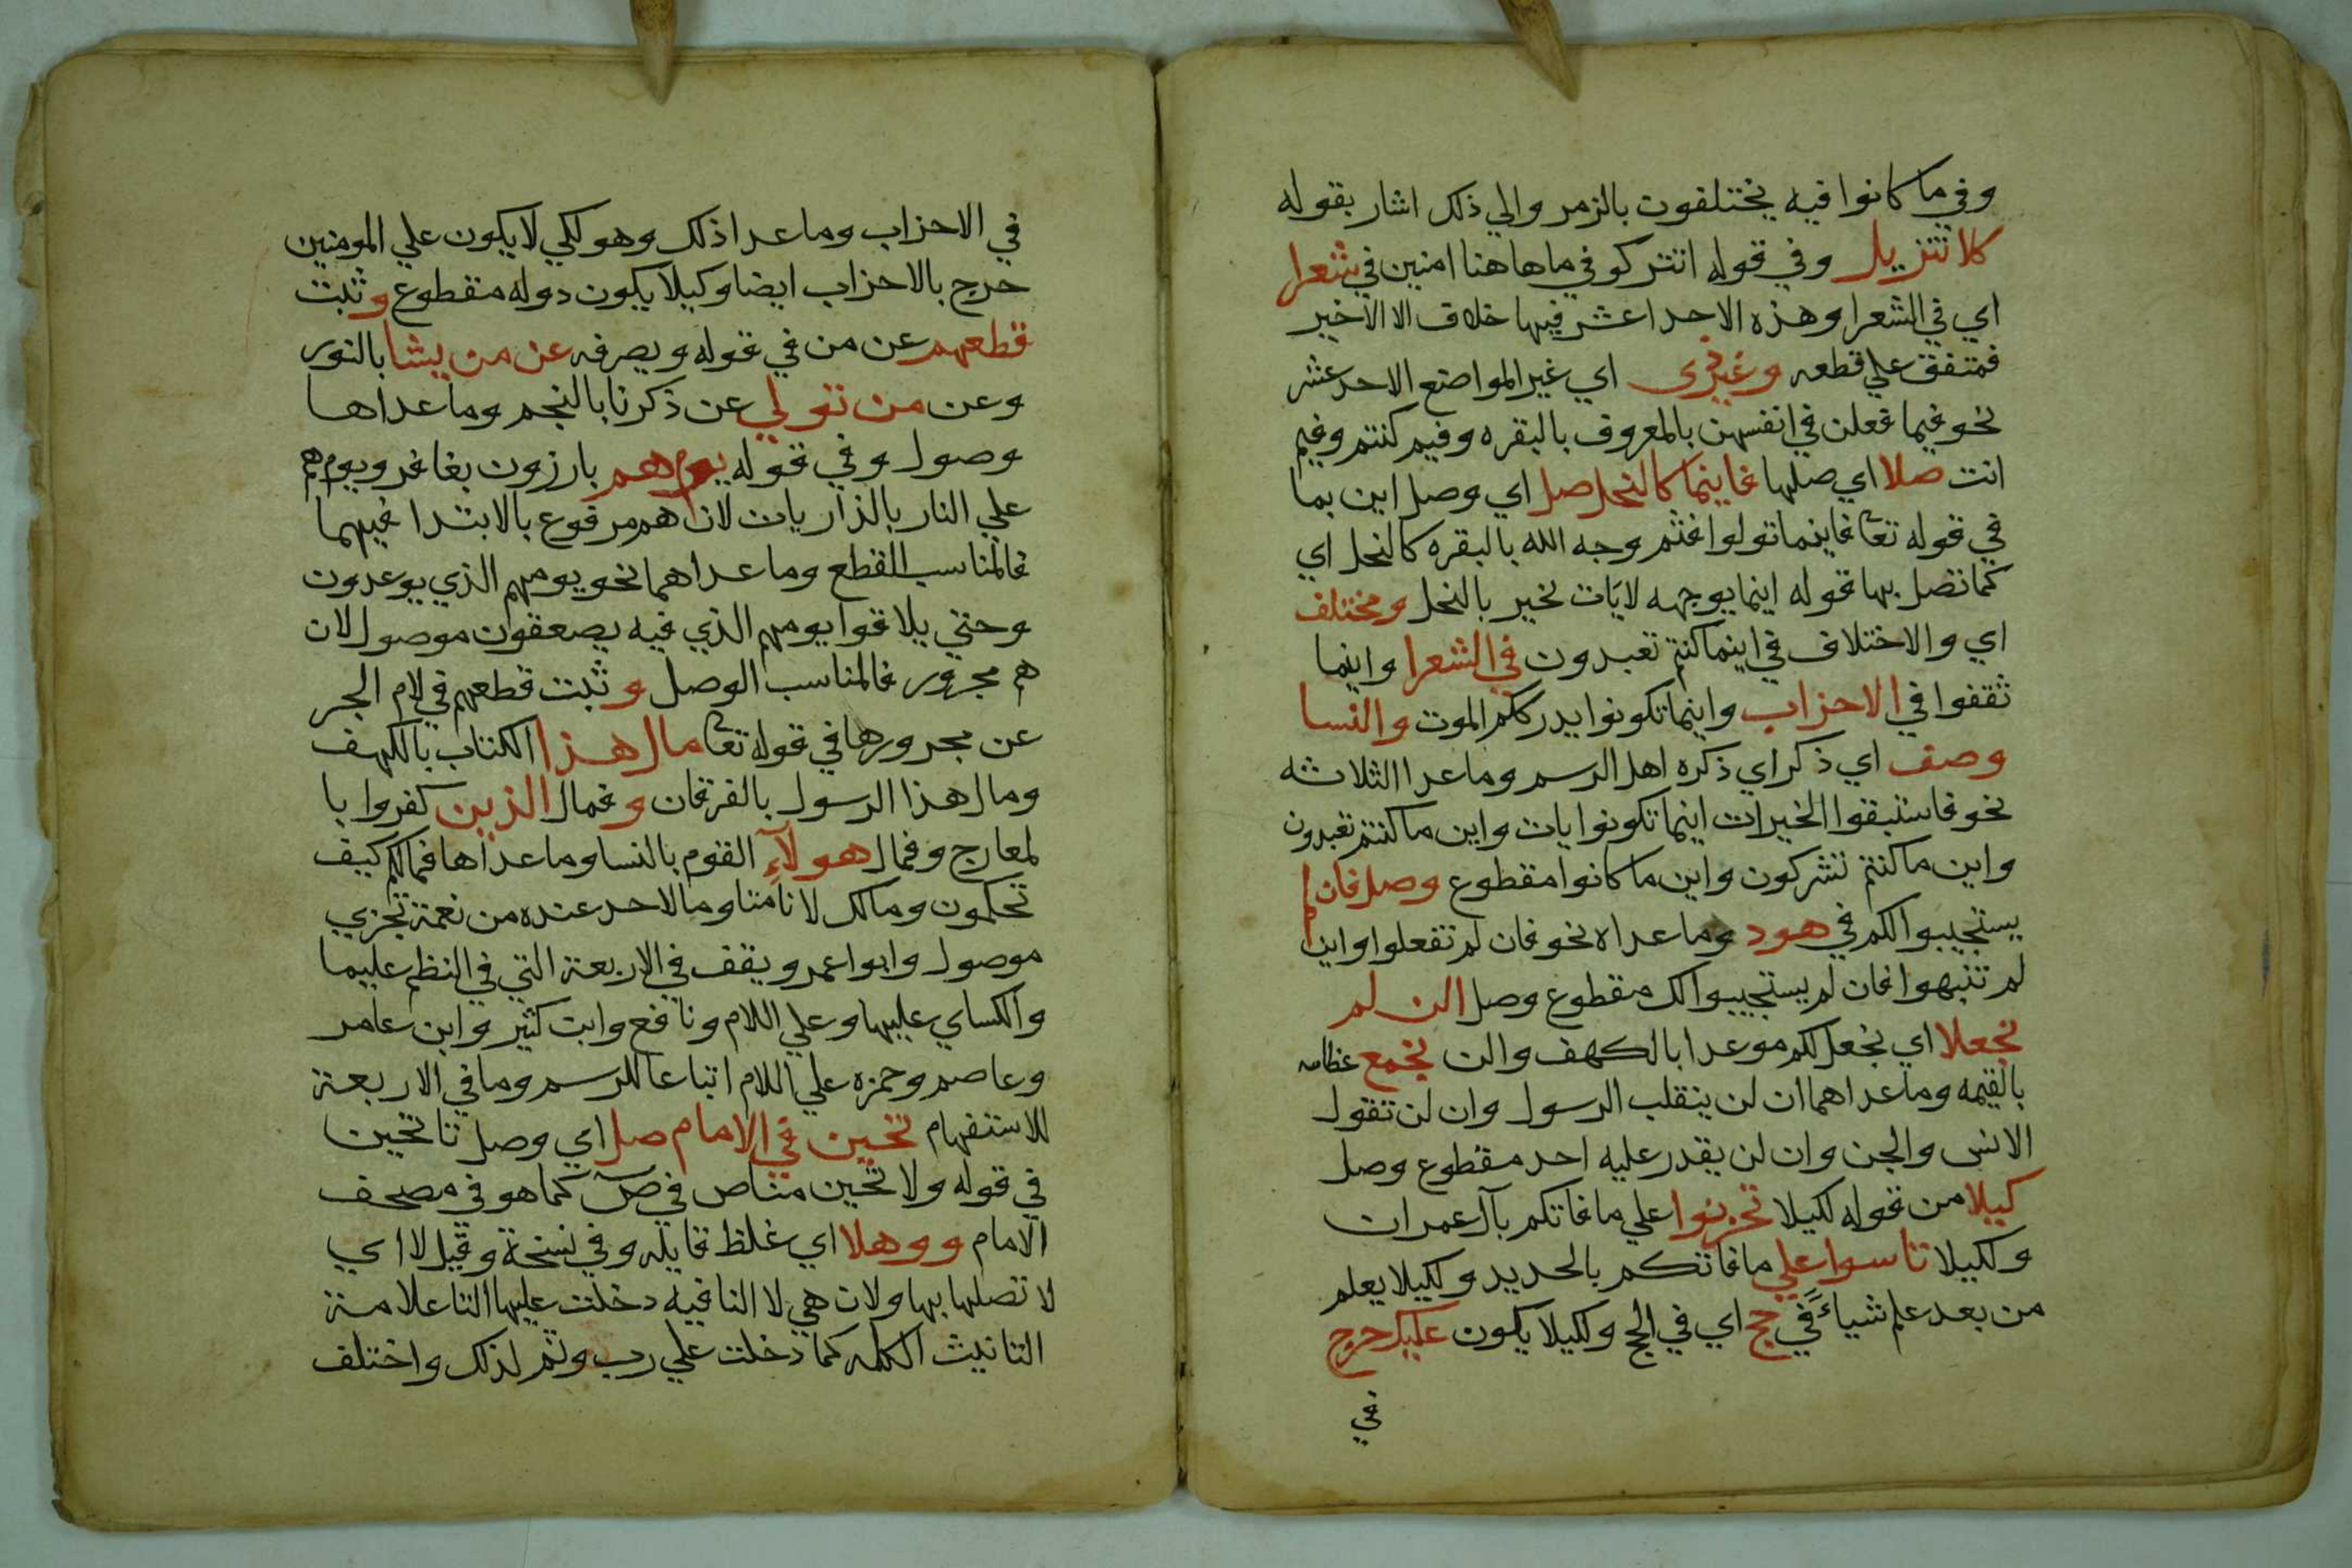 وفي ما كانوا فيه يختلفون بالزمر والي ذلك اشار بقوله
كلا تنزيل وفي قوله اتتركو في ما هاهنا امنين في شعرا
اي في الشعرا وهذه الاحد اعشر فيها خلاف الا الاخير
فمتفق علي قطعه وغير ذي اي غير المواضع الاحد عشر
نحو فيما فعلن في انفسهن بالمعروف بالبقره وفيم كنتم وفيم
انت صلا اي صلها فاينما كالنحل صل اي وصل اين بما
في قوله تعا فاينما تولوا فثم وجه الله بالبقره كالنحل اي
كما تصل بها قوله اينما يوجهه لايات بخير بالنحل ومختلف
اي والاختلاف في اينما كنتم تعبدون في الشعرا واينما
ثقفوا في الاحزاب واينما تكونوا يدرككم الموت والنسا
وصف اي ذكر اي ذكره اهل الرسم وما عدا الثلاثه
نحو فاستبقوا الخيرات اينما تكونوا يات واين ما كنتم تعبدون
واين ما كنتم تشركون واين ما كانوا مقطوع وصل فان لم
يستجيبوا لكم في هود وما عداه نحو فان لم تفعلوا واين
لم تنبهوا فان لم يستجيبوا لك مقطوع وصل الن لم
نجعلا اي نجعل لكم موعدا بالكهف والن نجمع عظامه
بالقيمه وما عداهما ان لن ينقلب الرسول وان لن تقول
الانس والجن وان لن يقدر عليه احد مقطوع وصل
كيلا من قوله لكيلا تحزنوا علي ما فاتكم بآل عمران
ولكيلا تاسوا علي ما فاتكم بالحديد ولكيلا يعلم
من بعد علم شياء في حج اي في الحج ولكيلا يكون عليك حرج
في
في الاحزاب وما عدا ذلك وهو لكي لا يكون علي المومنين
حرج بالاحزاب ايضا وكيلا يكون دوله مقطوع وثبت
قطعهم عن من في قوله ويصرفه عن من يشا بالنور
وعن من تولي عن ذكرنا بالنجم وما عداها
وصول وفي قوله يوم هم بارزون بغافر ويوم هم
علي النار بالذاريات لان هم مرفوع بالابتدا فيهما
فالمناسب القطع وما عداهما نحو يومهم الذي يوعدون
وحتي يلاقوا يومهم الذي فيه يصعقون موصول لان
هم مجرور فالمناسب الوصل وثبت قطعهم في لام الجر
عن مجرورها في قوله تعا مال هذا الكتاب بالكهف
ومال هذا الرسول بالفرقان وفمال الذين كفروا با
لمعارج وفمال هولآء القوم بالنسا وما عداها فمالكم كيف
تحكمون ومالك لا تامنا وما لاحد عنده من نعمة تجزي
موصول وابوا عمرو يقف في الاربعة التي في النظم علي ما
والكساي عليها وعلي اللام ونافع وابن كثير وابن عامر
وعاصم وحمزه علي اللام اتباعا للرسم وما في الاربعة
للاستفهام تحين في الامام صل اي وصل تا تحين
في قوله ولا تحين مناص في صٓ كما هو في مصحف
الامام ووهلا اي غلظ قايله وفي نسخة وقيل لا اي
لا تصلها بها ولات هي لا النافيه دخلت عليها التا علامة
التانيث الكلمه كما دخلت علي رب وثم لذلك واختلف